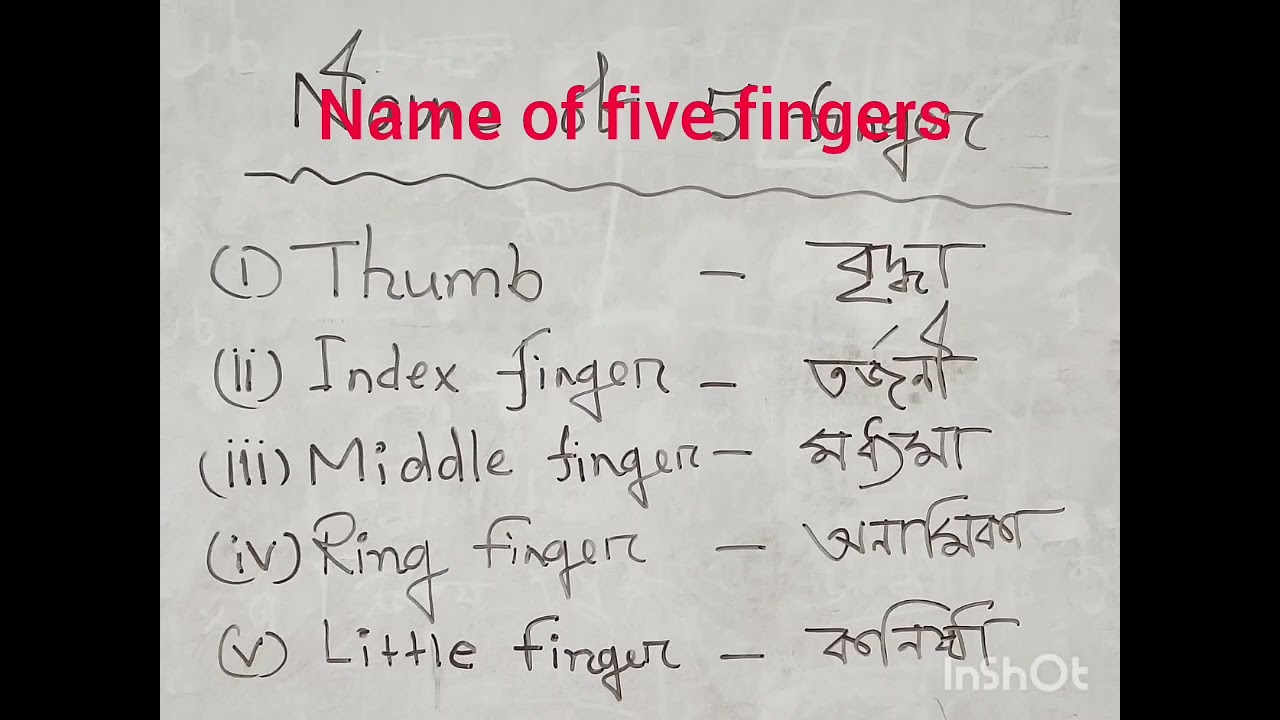 Name of 5 finger
Name of five fingers
(i) Thumb - বৃদ্ধা
(ii) Index finger - তর্জনী
(iii) Middle finger - মধ্যমা
(iv) Ring finger - অনামিকা
(v) Little finger - কনিষ্ঠা
InShOt